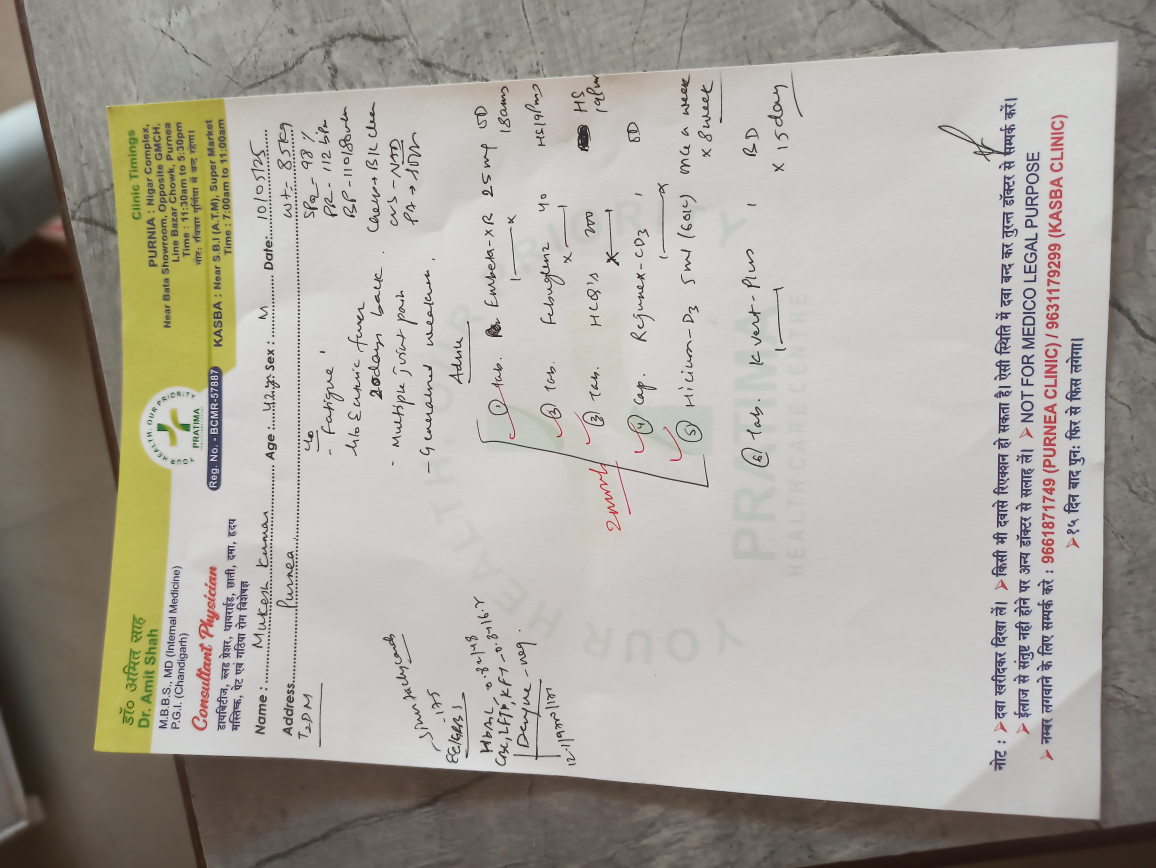 डॉ० अमित साह
Dr. Amit Shah
M.B.B.S., MD (Internal Medicine)
P.G.I. (Chandigarh)
Consultant Physician
डायबिटीज, ब्लड प्रेशर, थायराईड, छाती, दमा, हृदय
मस्तिष्क, पेट एवं गठिया रोग विशेषज्ञ
YOUR HEALTH, OUR PRIORITY
PRATIMA
Reg. No. - BCMR-57887
Clinic Timings
PURNIA : Nigar Complex,
Near Bata Showroom, Opposite GMCH,
Line Bazar Chowk, Purnea
Time : 11:30am to 5:30pm
नोट: रविवार पूर्णिया में बन्द रहेगा।
KASBA : Near S.B.I (A.T.M), Super Market
Time : 7:00am to 11:00am
Name : Mukesh Kumar Age : 42 yr Sex : M Date: 10/05/25
Address Purnea Wt- 85kg
T2DM
c/o
- Fatigue
SPO2- 98%
PR- 112 bpm
h/o Enteric fever
20days back.
BP- 110/80
- Multiple joint pain
Chest- B/L clear
CVS - NAD
- Generalised weakness.
Advise
① Tab. 25 mg OD
② Tab. 40
③ Tab. HCQ's 200 HS
④ Cap. OD
2 month
⑤ -D3 5ml (60K) once a week
x 8 week
⑥ Tab. K vert-Plus 1 BD
x 15 day
Dengue - neg.
YOUR HEALTH, OUR PRIORITY
PRATIMA
HEALTH CARE CENTRE
नोट : ➤ दवा खरीदकर दिखा लें। ➤ किसी भी दवासे रिएक्शन हो सकता है। ऐसी स्थिति में दवा बन्द कर तुरन्त डॉक्टर से सम्पर्क करें।
➤ ईलाज से संतुष्ट नही होने पर अन्य डॉक्टर से सलाह लें। ➤ NOT FOR MEDICO LEGAL PURPOSE
➤ नम्बर लगवाने के लिए सम्पर्क करे : 9661871749 (PURNEA CLINIC) / 9631179299 (KASBA CLINIC)
➤ १५ दिन बाद पुनः फिर से फिस लगेगा।